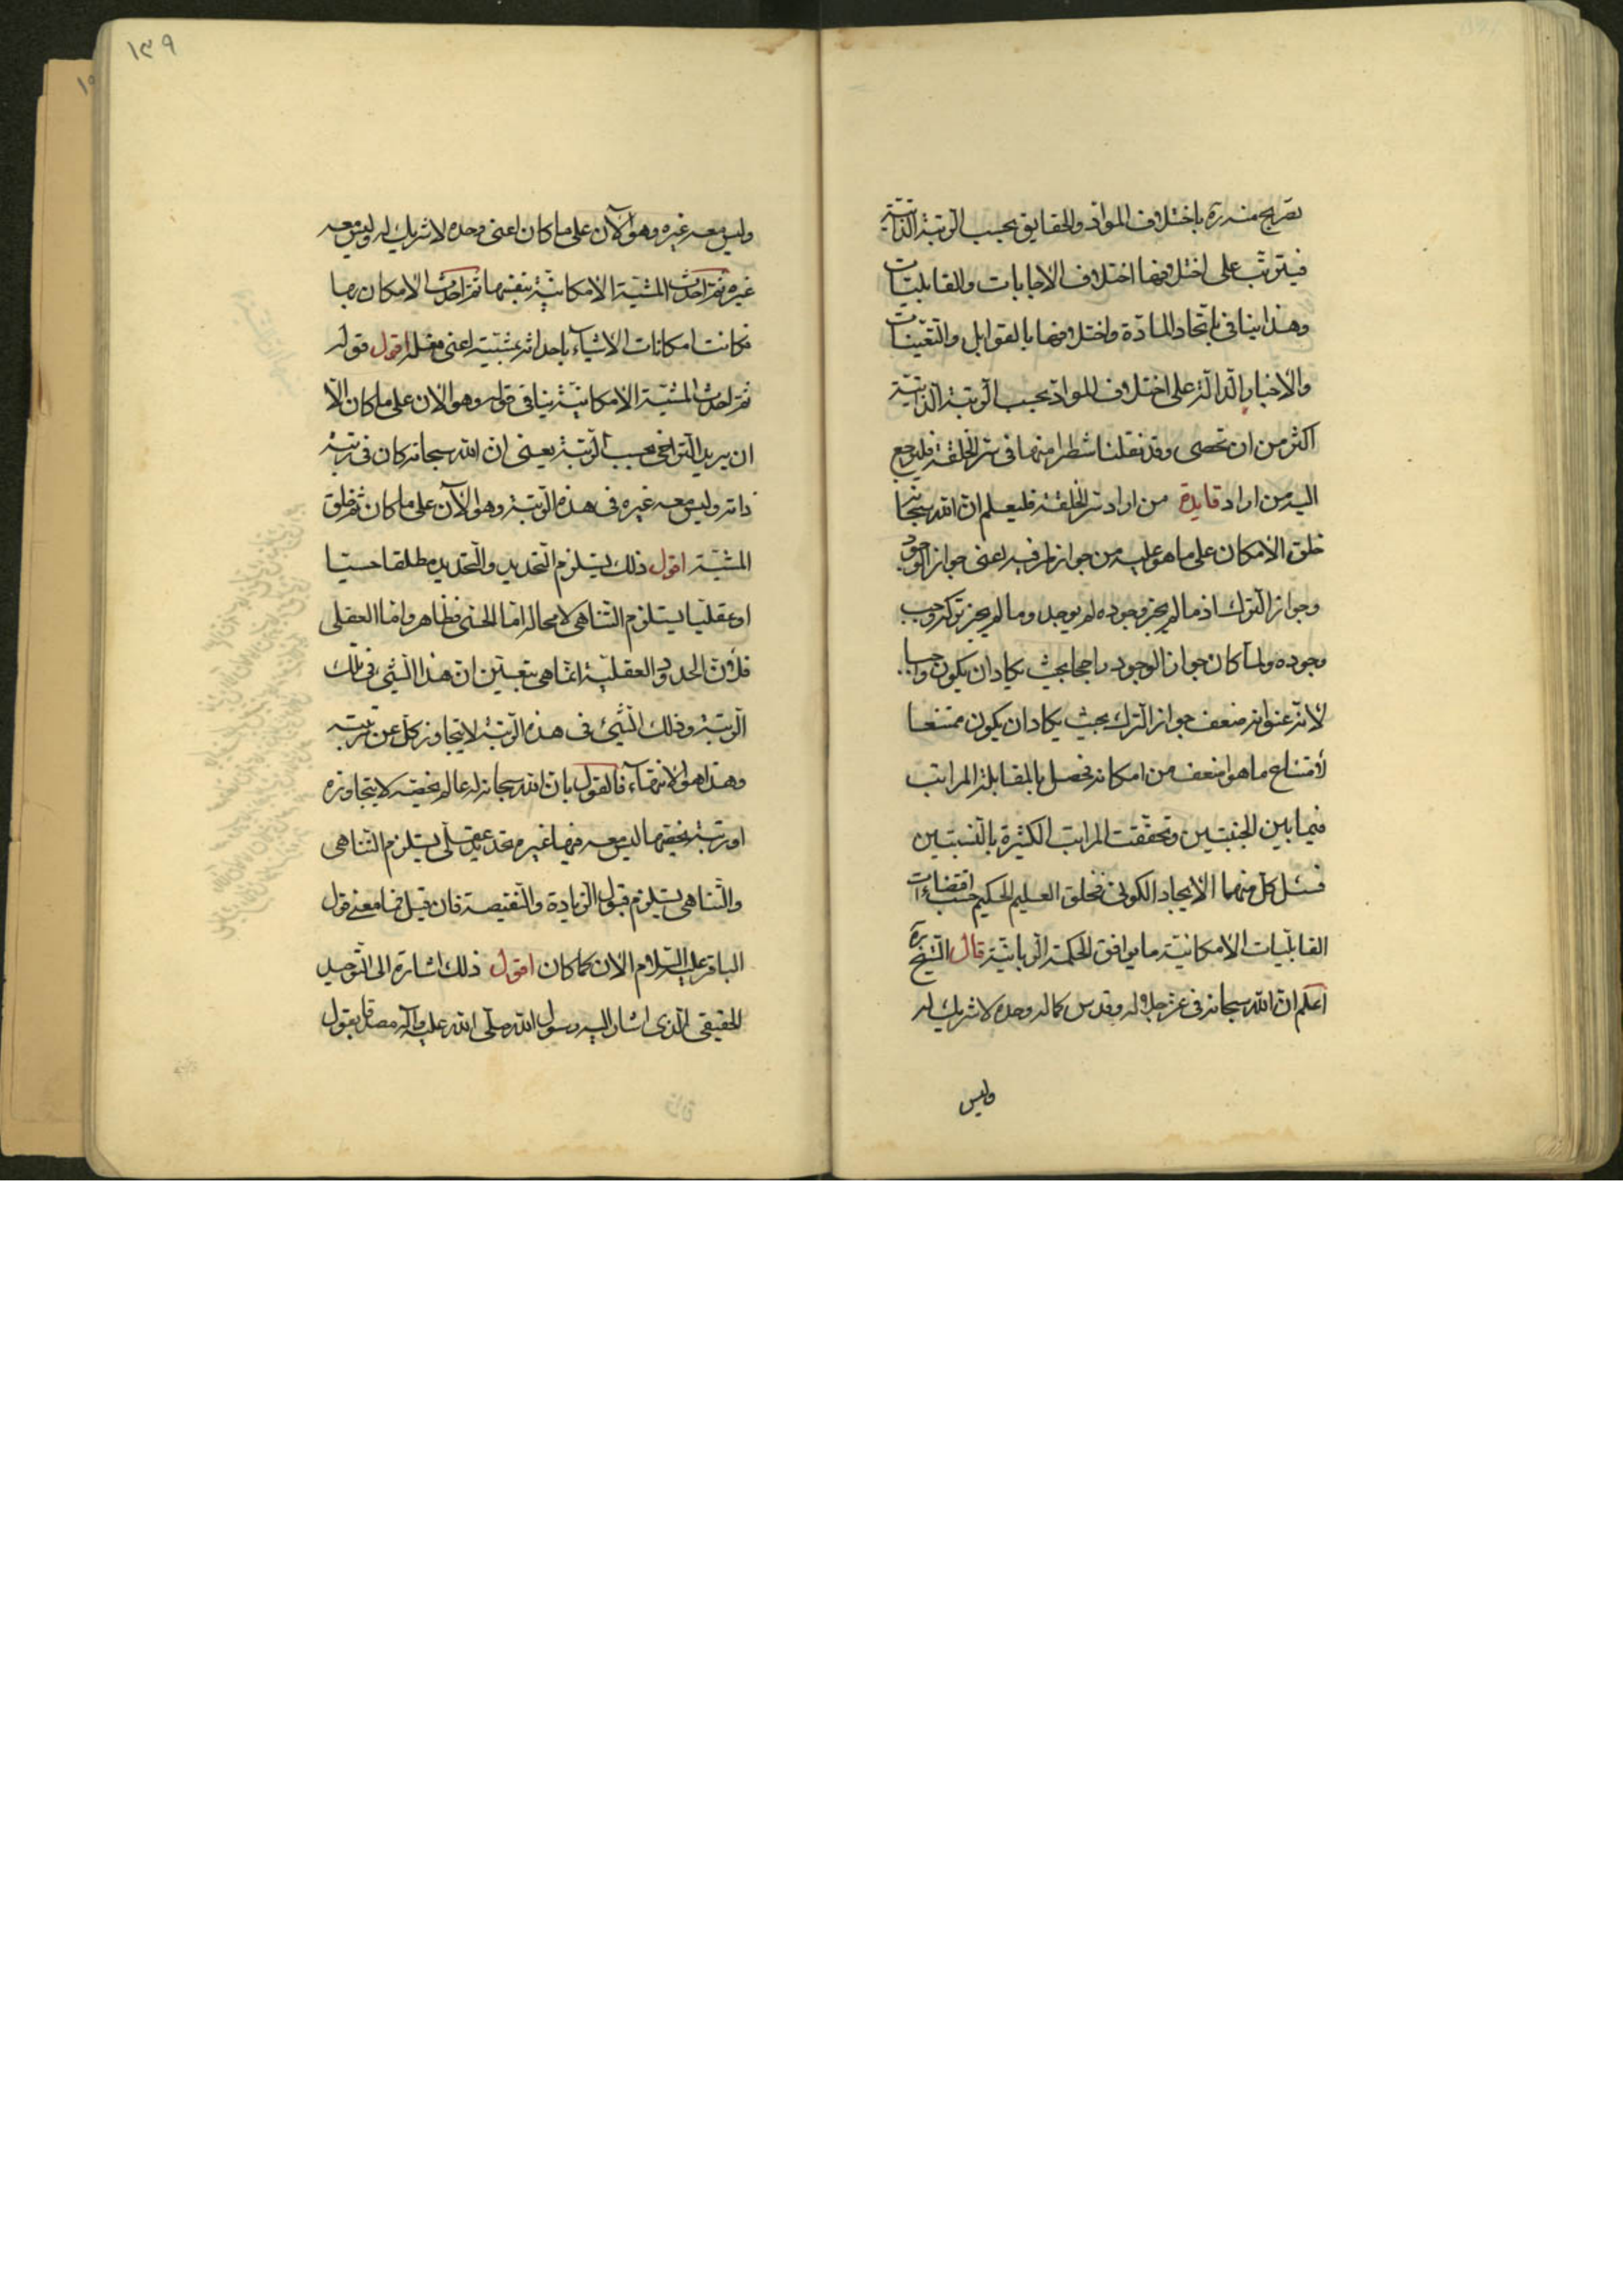 تصريح منه ره باختلاف المواد والحقايق بحسب الرتبة الذاتية
فيترتب على اختلافها اختلاف الاجابات والقابليات
وهذا ينافي باتحاد المادة واختلافها بالقوابل والتعينات
والاخبار الدالة على اختلاف المواد بحسب الرتبة الذاتية
اكثر من ان تحصى وقد نقلنا شطرا منها في سر الخلقة فليرجع
اليه من اراد فايدة من اراد سر الخلقة فليعلم ان الله سبحانه
خلق الامكان على ما هو عليه من جواز طرفيه اعنى جواز الوجود
وجواز الترك اذ ما لم يجز وجوده لم يوجد وما لم يجز تركه وجب
وجوده ولما كان جواز الوجود راجحا بحيث يكاد ان يكون واجبا
لانه عنوانه ضعف جواز الترك بحيث يكاد ان يكون ممتنعا
لامتناع ما هو اضعف من امكانه فحصل بالمقابلة المراتب
فيما بين الجنبتين وتحققت المراتب الكثيرة بالنسبتين
فسئل كل منهما الايجاد الكونى فخلق العليم الحكيم حسب اقتضاءات
القابليات الامكانية ما يوافق الحكمة الربانية قال الشيخ ره
اعلم ان الله سبحانه فى عز جلاله وقدس كماله وحده لا شريك له
وليس
١٣٩
وليس معه غيره وهو الآن على ما كان اعنى وحده لا شريك له وليس معه
غيره ثم احدث المشية الامكانية بنفسها ثم احدث الامكان بها
فكانت امكانات الاشياء باحداثه بمشيته اعنى فعله اقول قوله
ثم احدث المشية الامكانية ينافى قوله وهو الان على ما كان الا
ان يريد التراخى بحسب الرتبة يعنى ان الله سبحانه كان فى رتبة
ذاته وليس معه غيره فى هذه الرتبة وهو الآن على ما كان ثم خلق
المشية اقول ذلك يستلزم التحديد والتحديد مطلقا حسيا
او عقليا يستلزم التناهى لا محالة اما الحسى فظاهر واما العقلى
فلان الحدود العقلية انما هى بتعيين ان هذا الشئ فى تلك
الرتبة وذلك الشئ فى هذه الرتبة لا يتجاوز كل عن رتبته
وهذا هو الانتهاء فالقول بان الله سبحانه له عالم يخصه لا يتجاوزه
او رتبة يخصها ليس معه فيها غيره تحديد عقلى يستلزم التناهى
والتناهى يستلزم قبول الزيادة والنقيصة فان قيل فما معنى قول
الباقر عليه السلام الان كما كان اقول ذلك اشارة الى التوحيد
الحقيقى الذى اشار اليه رسول الله صلى الله عليه وآله مصداقا بقول